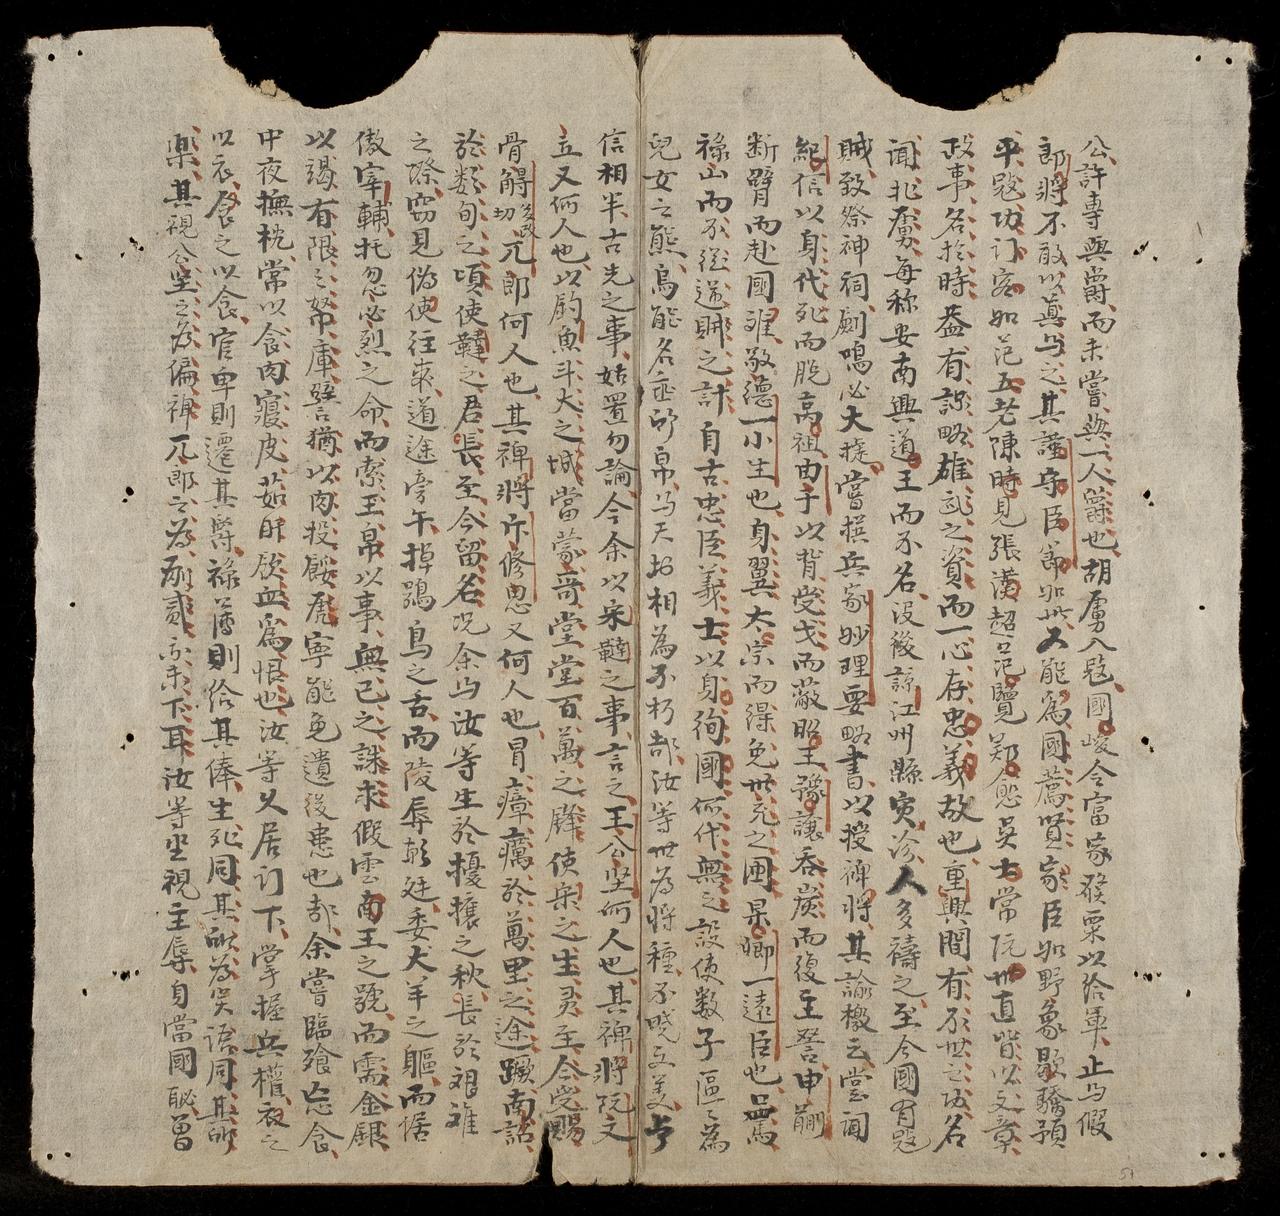 公許專與爵而未嘗與一人爵也胡虜入冦國峻令富家發粟以給軍止与假
郎將不敢以真与之其謹守臣節如此又能爲國薦賢家臣如野象歇驕預
平冦功门客如范五老陳時見張漢超召范覽鄭愈吳士常阮世直皆以文章
政事名於時盖有謀略雄武之資而一心存忠義故也重興間有不世之功名
闻北虜每称安南興道王而不名没後諒江州縣灾沴人多禱之至今國有冦
賊致祭神祠劍鳴必大捷嘗撰兵家妙理要略書以授裨將其諭檄云嘗闻
紀信以身代死而脱高祖由于以背受戈而蔽昭王豫讓吞炭而復主讐申蒯
断臂而赴國难敬德一小生也身翼太宗而得免世充之圍杲卿一遠臣也口罵
祿山而不從逆賊之計自古忠臣義士以身徇國何代無之設使数子區〻為
兒女之態烏能名垂竹帛与天地相為不朽哉汝等世為將種不曉文義与
信相半古先之事姑置勿論今余以宋韃之事言之王公坚何人也其裨將阮文
立又何人也以釣魚斗大之城當蒙哥堂堂百萬之鋒使宋之生灵至今受賜
骨䚟兀郎何人也其裨將斤修思又何人也冒瘴癘於萬里之途蹶南詔
於数旬之頃使韃之君長至今留名况余与汝等生於擾攘之秋長於艰难
之際竊見偽使往來道途旁午掉鴞鳥之舌而陵辱朝廷委犬羊之軀而倨
傲宰輔托忽必烈之命而索玉帛以事無已之誅求假雲南王之號而需金銀
以竭有限之帑庫譬猶以肉投餒虎寧能免遺後患也哉余嘗臨飧忘食
中夜撫枕常以食肉寢皮茹肝飲血爲恨也汝等久居门下掌握兵權衣之
以衣食之以食官卑則遷其爵祿薄則給其俸生死同其所為笑语同其所
樂其視公坚之為偏裨兀郎之為副貳亦未下耳汝等坐視主辱自當國恥曾